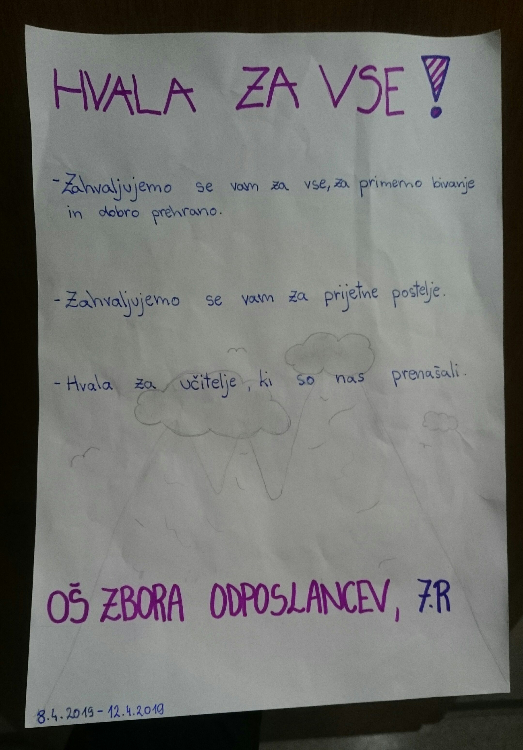 HVALA ZA VSE!
- Zahvaljujemo se vam za vse, za primerno bivanje
in dobro prehrano.
- Zahvaljujemo se vam za prijetne postelje.
- Hvala za učitelje, ki so nas prenašali.
OŠ ZBORA ODPOSLANCEV, 7.R
8.4.2019 - 12.4.2019